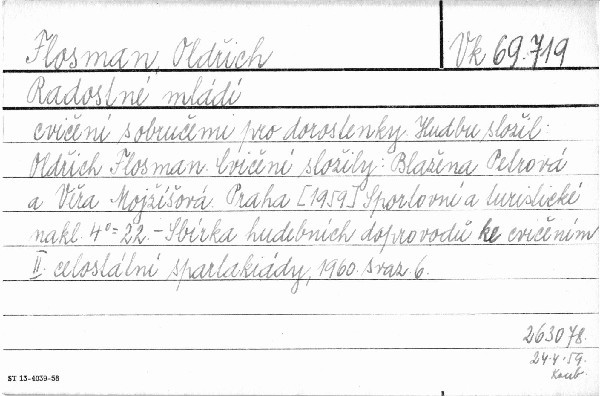 Flosman, Oldřich Vk 69.719
Radostné mládí
cvičení s obručemi pro dorostenky. Hudbu složil:
Oldřich Flosman. Cvičení složily: Blažena Petrová
a Věra Mojžíšová. Praha [1959] Sportovní a turistické
nakl. 4°= 22.- Sbírka hudebních doprovodů ke cvičením
II. celostátní spartakiády, 1960. svaz. 6.
263078.
24.4.59.
ST 13-4039-58